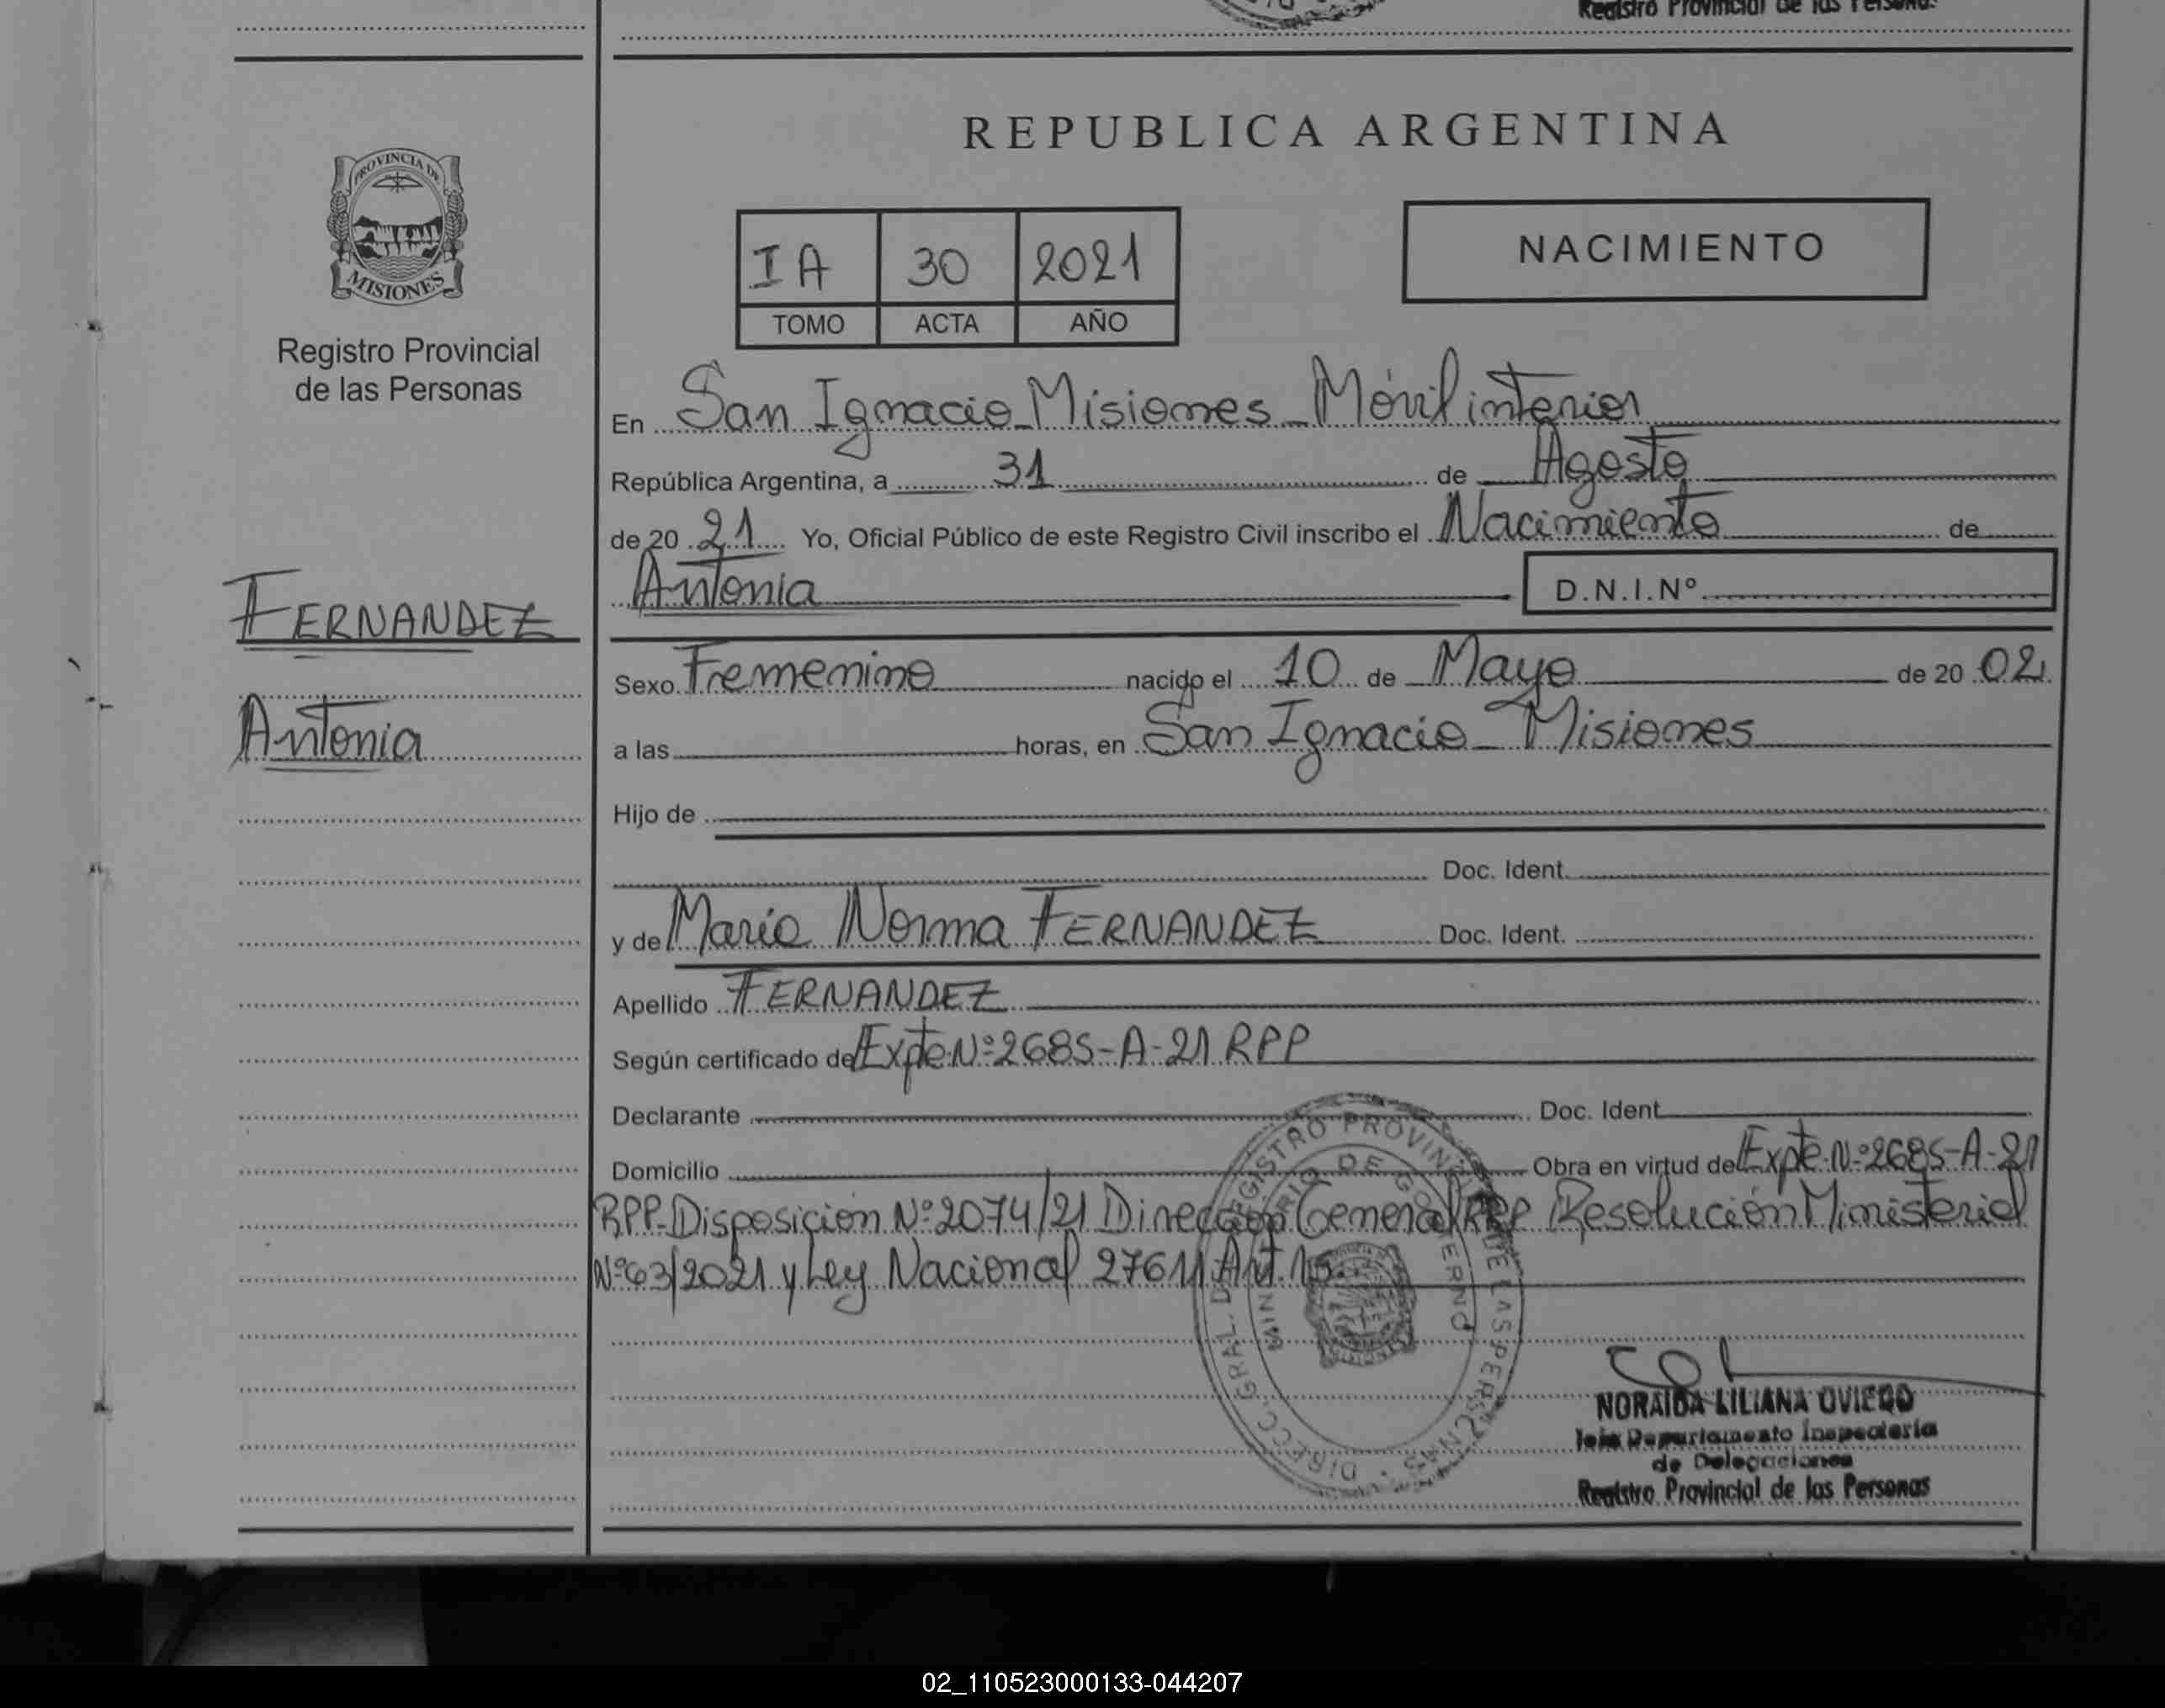 Registro Provincial de las Persona.
REPUBLICA ARGENTINA
PROVINCIA DE
MISIONES
Registro Provincial
de las Personas
IA 30 2021
TOMO ACTA AÑO
NACIMIENTO
En San Ignacio_Misiones_Móvil interior
República Argentina, a 31 de Agosto
de 20 21 Yo, Oficial Público de este Registro Civil inscribo el Nacimiento de
Antonia D.N.I.Nº
FERNANDEZ
Antonia
Sexo Femenino nacido el 10 de Mayo de 20 02
a las horas, en San Ignacio_Misiones
Hijo de
Doc. Ident.
y de Maria Norma FERNANDEZ Doc. Ident.
Apellido FERNANDEZ
Según certificado de Expte.Nº2685-A-21 RPP
Declarante Doc. Ident.
Domicilio Obra en virtud de Expte.Nº2685-A-21
RPP-Disposición Nº2074/21 Dirección General RPP Resolución Ministerial
Nº63/2021 y Ley Nacional 27611 Art.
DIRECC. GRAL. DEL REGISTRO PROVINCIAL DE LAS PERSONAS
MINISTERIO DE GOBIERNO
NORAIDA LILIANA OVIEDO
Jefa Departamento Inspectoría
de Delegaciones
Registro Provincial de las Personas
02_110523000133-044207